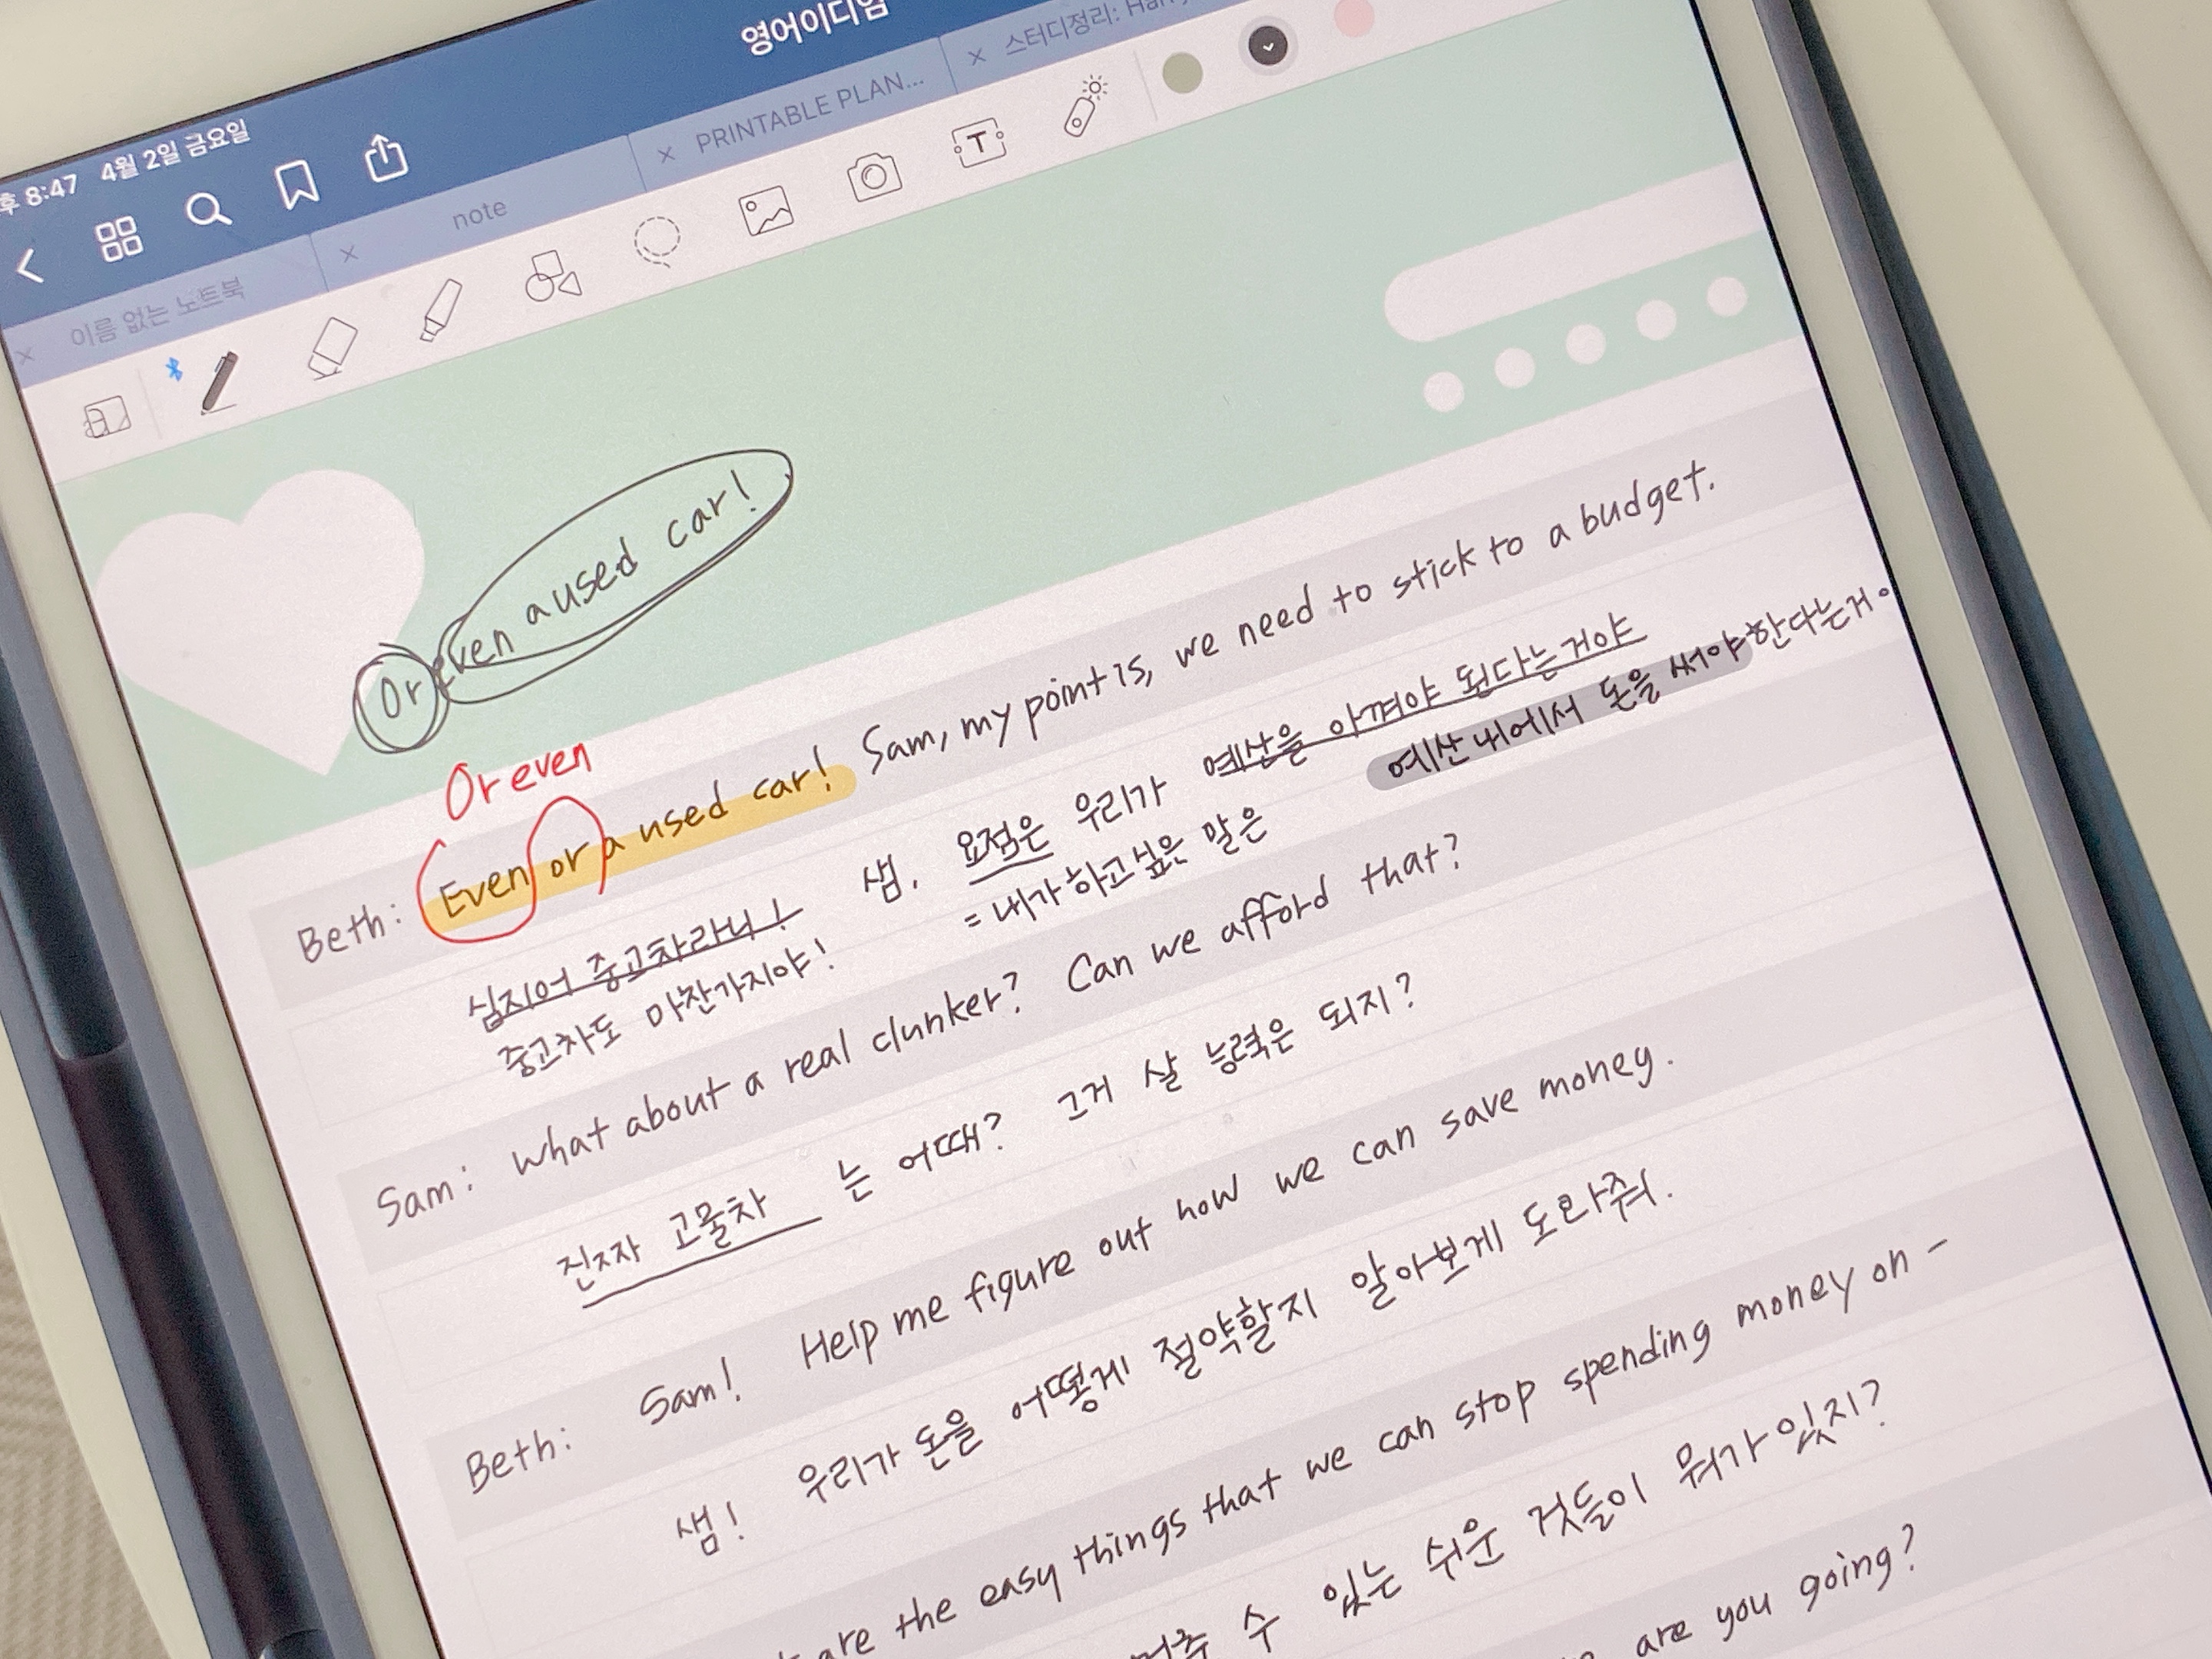 영어이디엄
후 8:47 4월 2일 금요일
이름 없는 노트북
note
PRINTABLE PLAN...
스터디정리:
T
Or even a used car!
Or even
Beth: Even or a used car! Sam, my point is, we need to stick to a budget.
심지어 중고차라니! 샘. 요점은 우리가 예산을 아껴야 된다는거야
중고차도 마찬가지야! = 내가 하고싶은 말은 예산내에서 돈을 써야한다는거。
Sam: What about a real clunker? Can we afford that?
진짜 고물차 는 어때? 그거 살 능력은 되지?
Beth: Sam! Help me figure out how we can save money.
샘! 우리가 돈을 어떻게 절약할지 알아보게 도와줘.
are the easy things that we can stop spending money on -
수 있는 쉬운 것들이 뭐가 있지?
are you going?